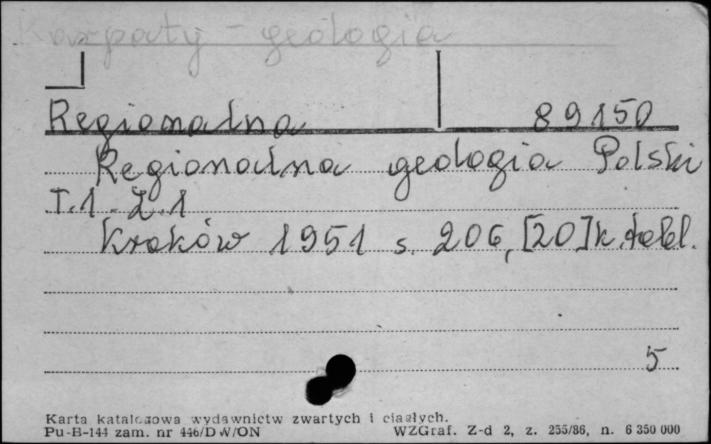 Karpaty - geologia
Regionalna 89150
Regionalna geologia Polski
T.1. Z.1
Kraków 1951 s. 206, [20] k. tabl.
5
Karta katalogowa wydawnictw zwartych i ciągłych.
Pu-B-144 zam. nr 446/DW/ON WZGraf. Z-d 2, z. 255/86, n. 6 350 000